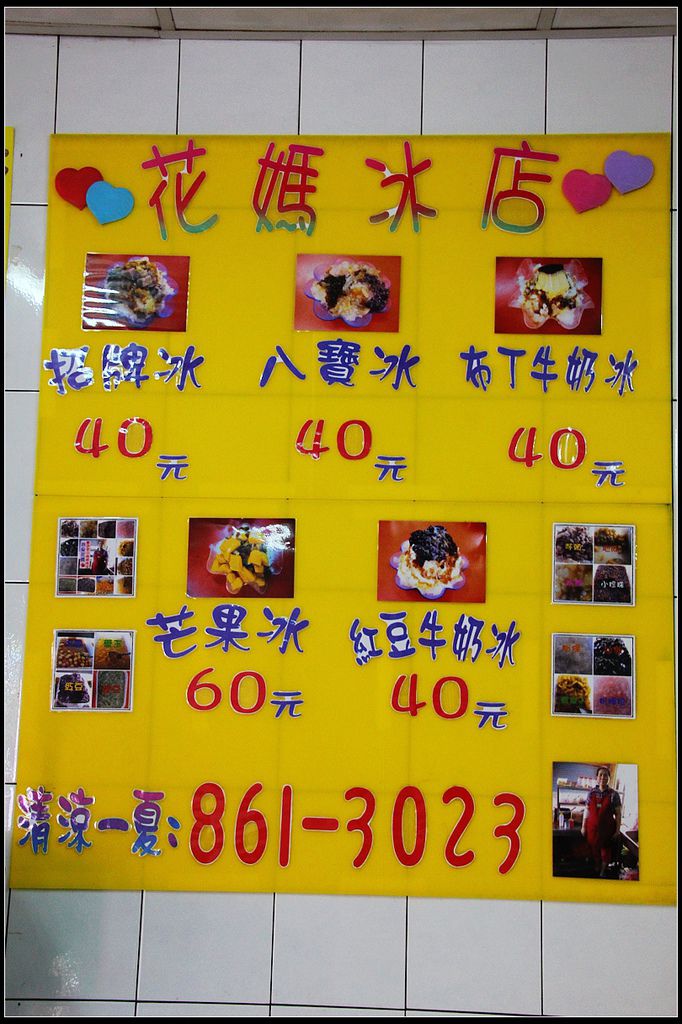 花媽冰店
招牌冰 八寶冰 布丁牛奶冰
40元 40元 40元
芒果冰 紅豆牛奶冰
60元 40元
小珍珠
清涼一夏:861-3023